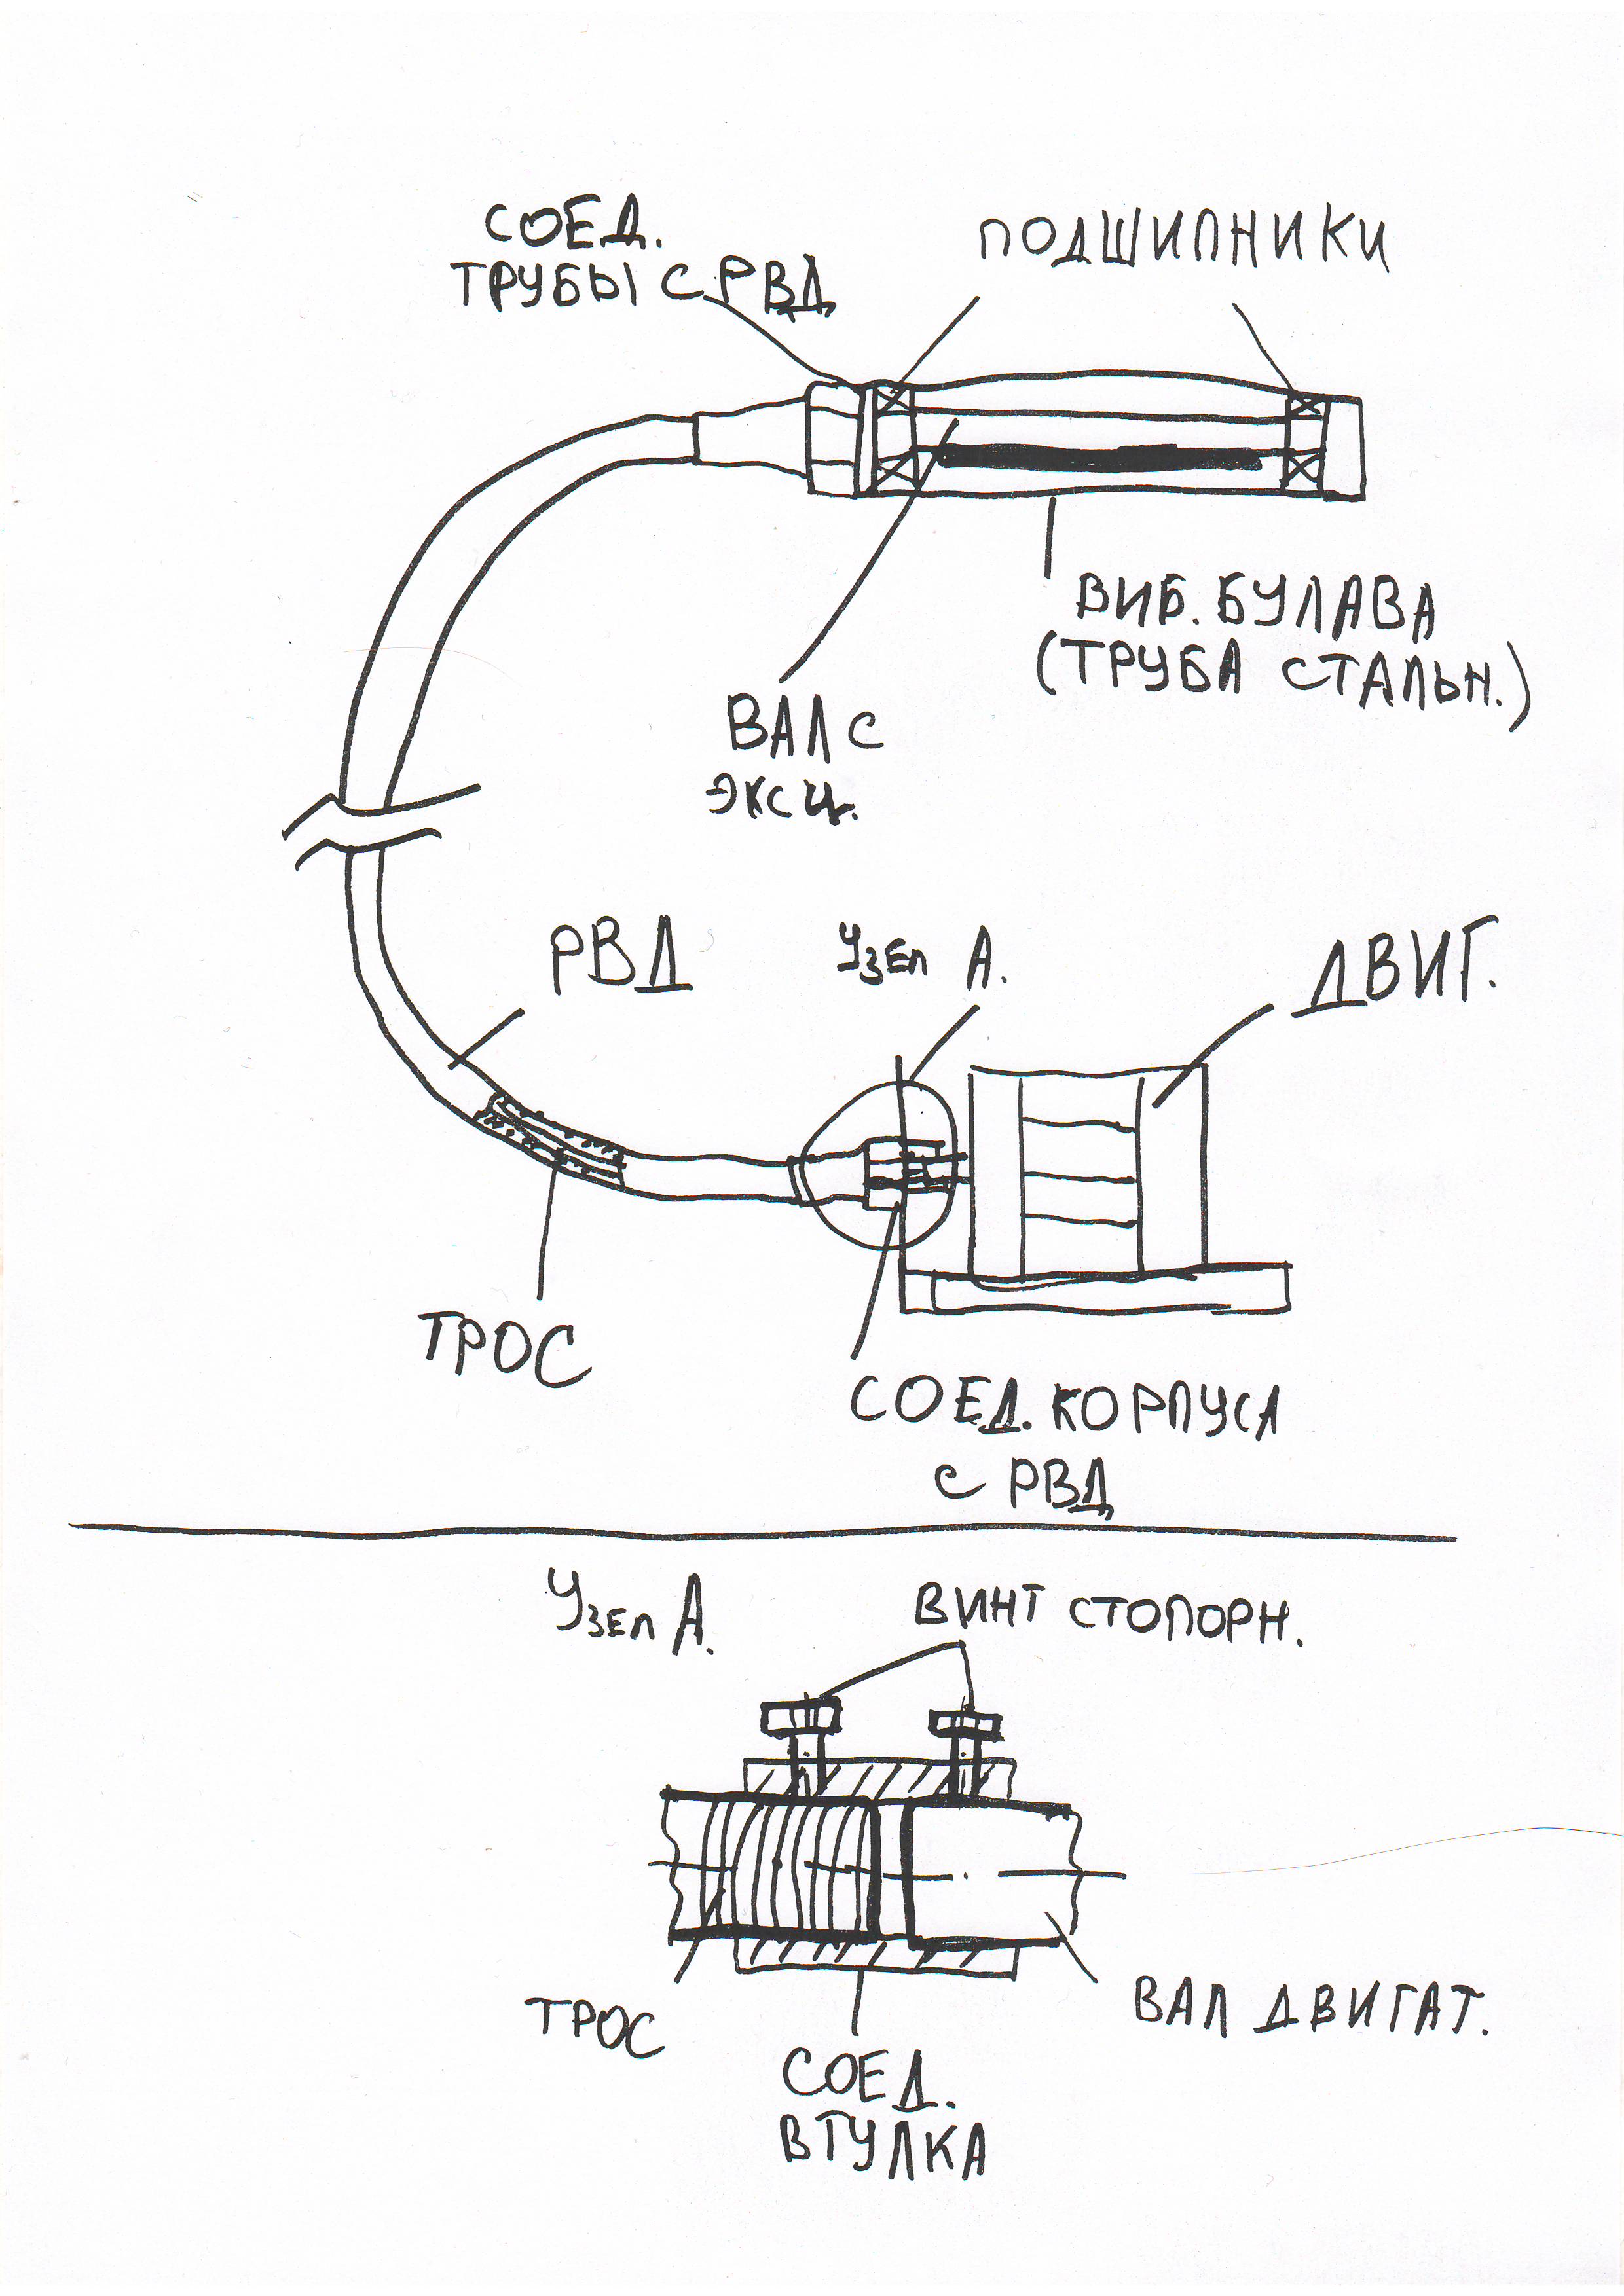 СОЕД.
ТРУБЫ С РВД
ПОДШИПНИКИ
ВИБ. БУЛАВА
(ТРУБА СТАЛЬН.)
ВАЛ С
ЭКСЦ.
РВД
УЗЕЛ А.
ДВИГ.
ТРОС
СОЕД. КОРПУСА
С РВД
УЗЕЛ А.
ВИНТ СТОПОРН.
ТРОС
СОЕД.
ВТУЛКА
ВАЛ ДВИГАТ.